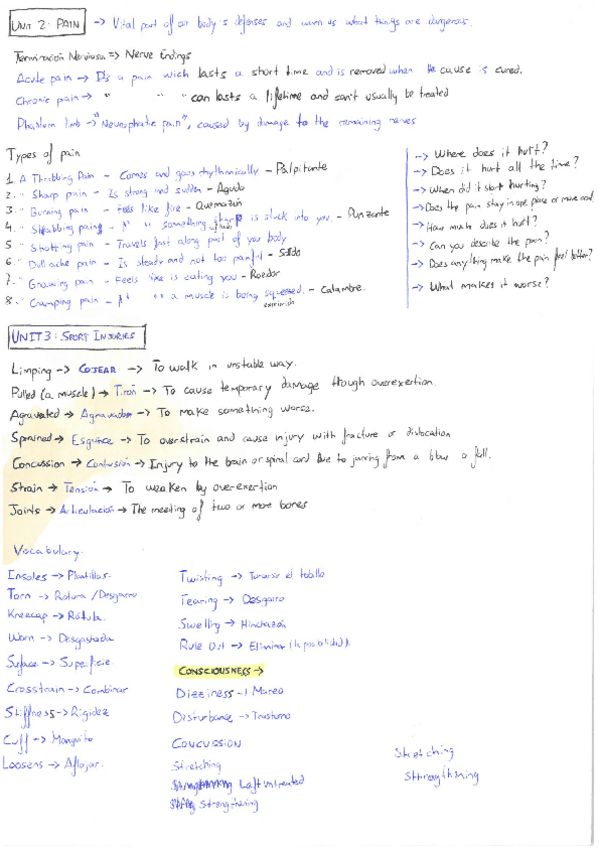 UNIT 2: PAIN -> Vital part of our body's defenses and warn us what things are dangerous.
Terminación Nerviosa => Nerve Endings
Acute pain -> It's a pain wich lasts a short time and is removed when the cause is cured.
Chronic pain -> " " " can lasts a lifetime and can't usually be treated
Phantom limb -> "Neurophatic pain", caused by damage to the remaining nerves
Types of pain
1. A Thribbing Pain - Comes and goes rhythmically - Palpitante
2. " Sharp pain - Is strong and sudden - Agudo
3. " Burning pain - Feels like fire - Quemazón
4. " Stabbing pain - " " something sharp is stuck into you. - Punzante
afilado
5 " Shotting pain - Travels fast along part of you body
6. " Dull ache pain - Is steady and not too painful - Sordo
7. " Gnawing pain - Feels like is eating you - Roedor
8. " Cramping pain - " " a muscle is being squeezed. - Calambre.
-> Where does it hurt?
-> Does it hurt all the time?
-> When did it start hurting?
-> Does the pain stay in one place or move around.
-> How much does it hurt?
-> Can you describe the pain?
-> Does anything make the pain feel better?
-> What makes it worse?
UNIT 3: SPORT INJURIES
Limping -> COJEAR -> To walk in unstable way.
Pulled (a muscle) -> Tirón -> To cause temporary damage though overexertion.
Agravated -> Agravador -> To make something worse.
Sprained -> Esguince -> To overstrain and cause injury with fracture or dislocation
Concussion -> Contusión -> Injury to the brain or spinal cord due to jarring from a blow o fall.
Strain -> Tensión -> To weaken by overexertion
Joints -> Articulación -> The meeting of two or more bones
Vocabulary.
Insoles -> Plantillas.
Torn -> Rotura / Desgarro
Kneecap -> Rótula.
Worn -> Desgastada
Surface -> Superficie.
Crosstrain -> Combinar
Stiffness -> Rigidez
Cuff -> Manguito
Loosens -> Aflojar.
Twisting -> Torcerse el tobillo
Tearing -> Desgarro
Swelling -> Hinchazón
Rule Out -> Eliminar (la posibilidad).
CONSCIOUSNESS ->
Dizziness -> Mareo
Disturbance -> Trastorno
CONCUSSION
Stretching
Left untreated
Strengthening
Stretching
Strengthening